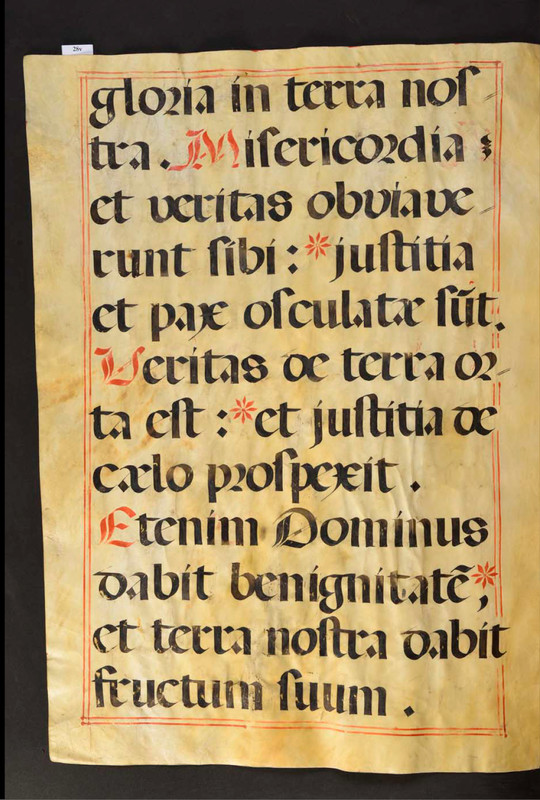 28v
gloria in terra nos
tra. Misericordia
et veritas obviave
runt sibi: * justitia
et pax osculatæ sūt.
Veritas de terra or
ta est: * et justitia de
cælo prospexit.
Etenim Dominus
dabit benignitatē, *
et terra nostra dabit
fructum suum.